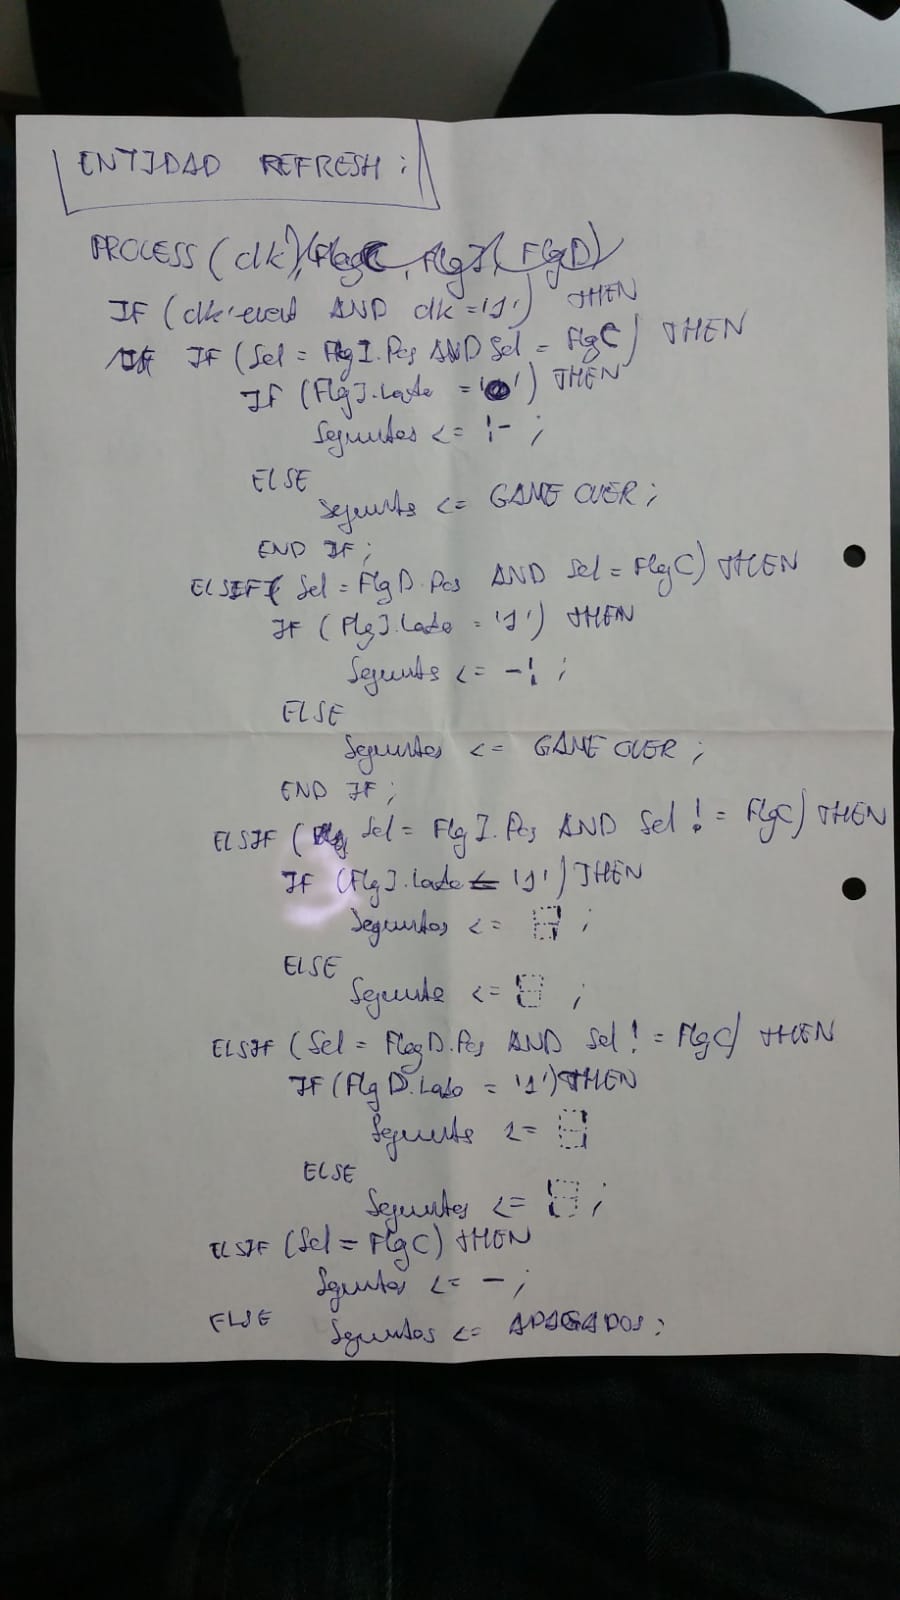 ENTIDAD REFRESH:
PROCESS (clk), FlagC, FlgI, (FlgD)
IF (clk'event AND clk = '1') THEN
IF (Sel = FlgI.Pos AND Sel = FlgC) THEN
IF (FlgI.Lado = ' ') THEN
Segmentos <= ¦- ;
ELSE
Segmentos <= GAME OVER;
END IF;
ELSEIF ( Sel = FlgD.Pos AND Sel = FlgC) THEN
IF (FlgI.Lado = '1') THEN
Segmentos <= -¦ ;
ELSE
Segmentos <= GAME OVER ;
END IF;
ELSIF ( Sel = FlgI.Pos AND Sel != FlgC) THEN
IF (FlgI.Lado = '1') THEN
Segmentos <= ;
ELSE
Segmentos <= ;
ELSIF (Sel = FlagD.Pos AND Sel != FlgC) THEN
IF (FlgD.Lado = '1') THEN
Segmentos <=
ELSE
Segmentos <= ;
ELSIF (Sel = FlgC) THEN
Segmentos <= - ;
ELSE
Segmentos <= APAGADOS;